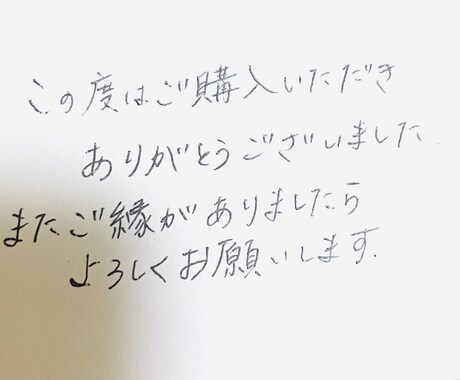 この度はご購入いただき
ありがとうございました.
またご縁がありましたら
よろしくお願いします.